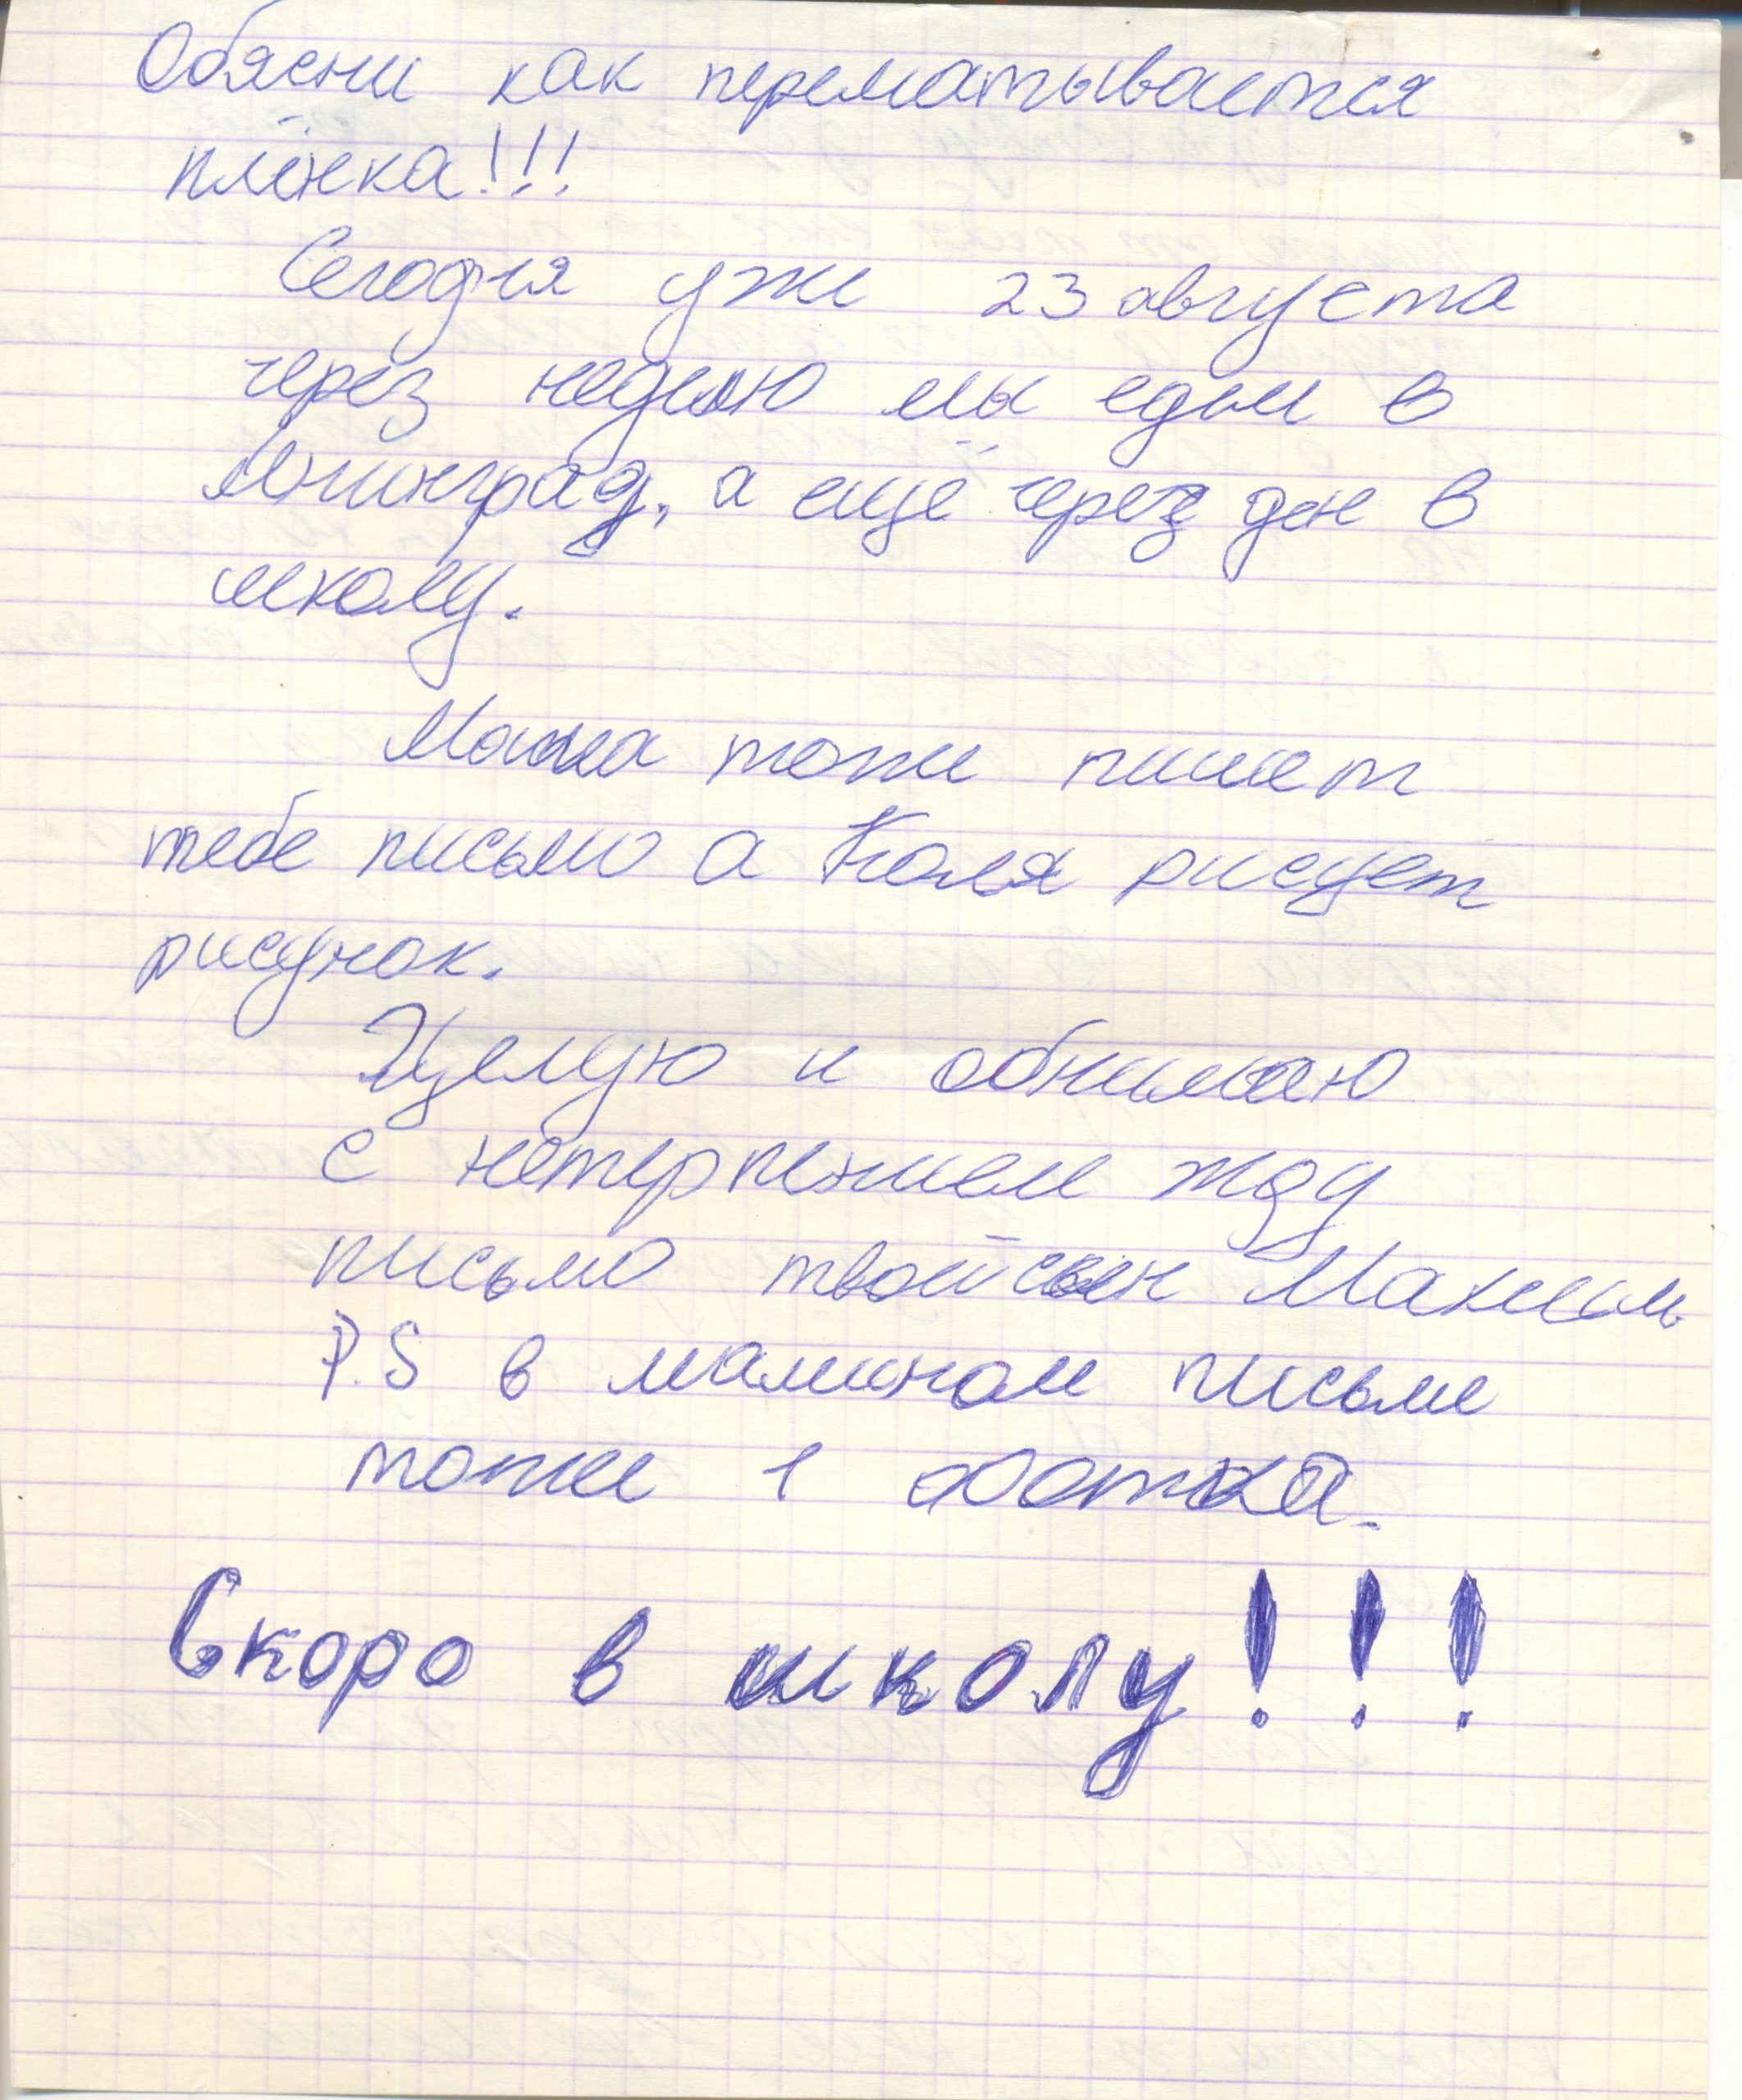 Обясни как перематывается
плёнка!!!
Сегодня уже 23 августа
через неделю мы едем в
Ленинград, а ещё через ден в
школу.
Мама тоже пишет
тебе письмо а Коля рисует
рисунок.
Целую и обнимаю
с нетерпением жду
письмо твой сын Максим
P.S в мамином письме
тоже 1 фотка.
Скоро в школу!!!